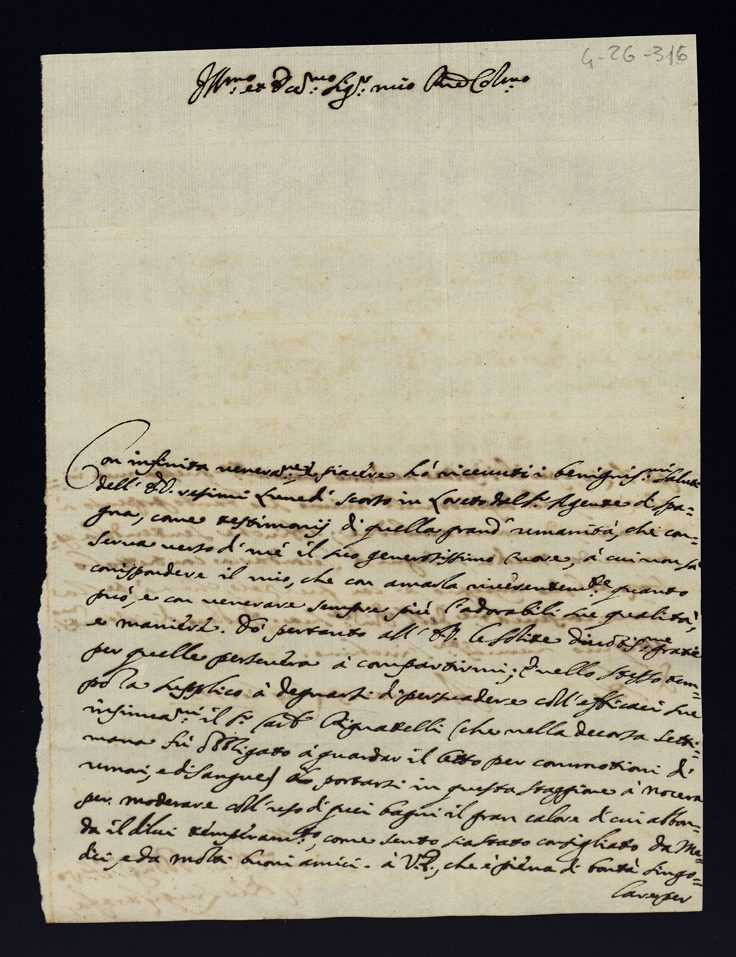 4-26-316
Ill.mo et Ecc.mo Sig.r mio P.ne Col.mo
Con infinita venera.ne, e piacere hò ricevuti i benigniss.mi saluti
dell' E.V. resimi Lunedì scorso in Loreto dal S.r Agente di Spa=
gna, come testimonij di quella grand' umanità, che con=
serva verso di mè il suo generosissimo Cuore, à cui non sà
corrispondere il mio, che con amarla riverentem.te quanto
può, e con venerare sempre più l'adorabili sue qualità,
e maniere. Dò pertanto all' E.V. le solite divotiss.me grazie
per quelle persevera à compartirmi; Quello stesso tem=
po la supplico à degnarsi di persuadere coll'efficaci sue
insinua.ni il S.r Card. Pignatelli (che nella decorsa setti=
mana fù obbligato à guardar il letto per commotioni di
umori, e di sangue) à portarsi in questa staggione à Nocera
per moderare coll'uso di quei bagni il gran calore di cui abbon=
da il di lui temperam.to, come sento sia stato consigliato da Me=
dici, e da molti buoni amici. à V.E., che è piena di bontà singo=
lare per